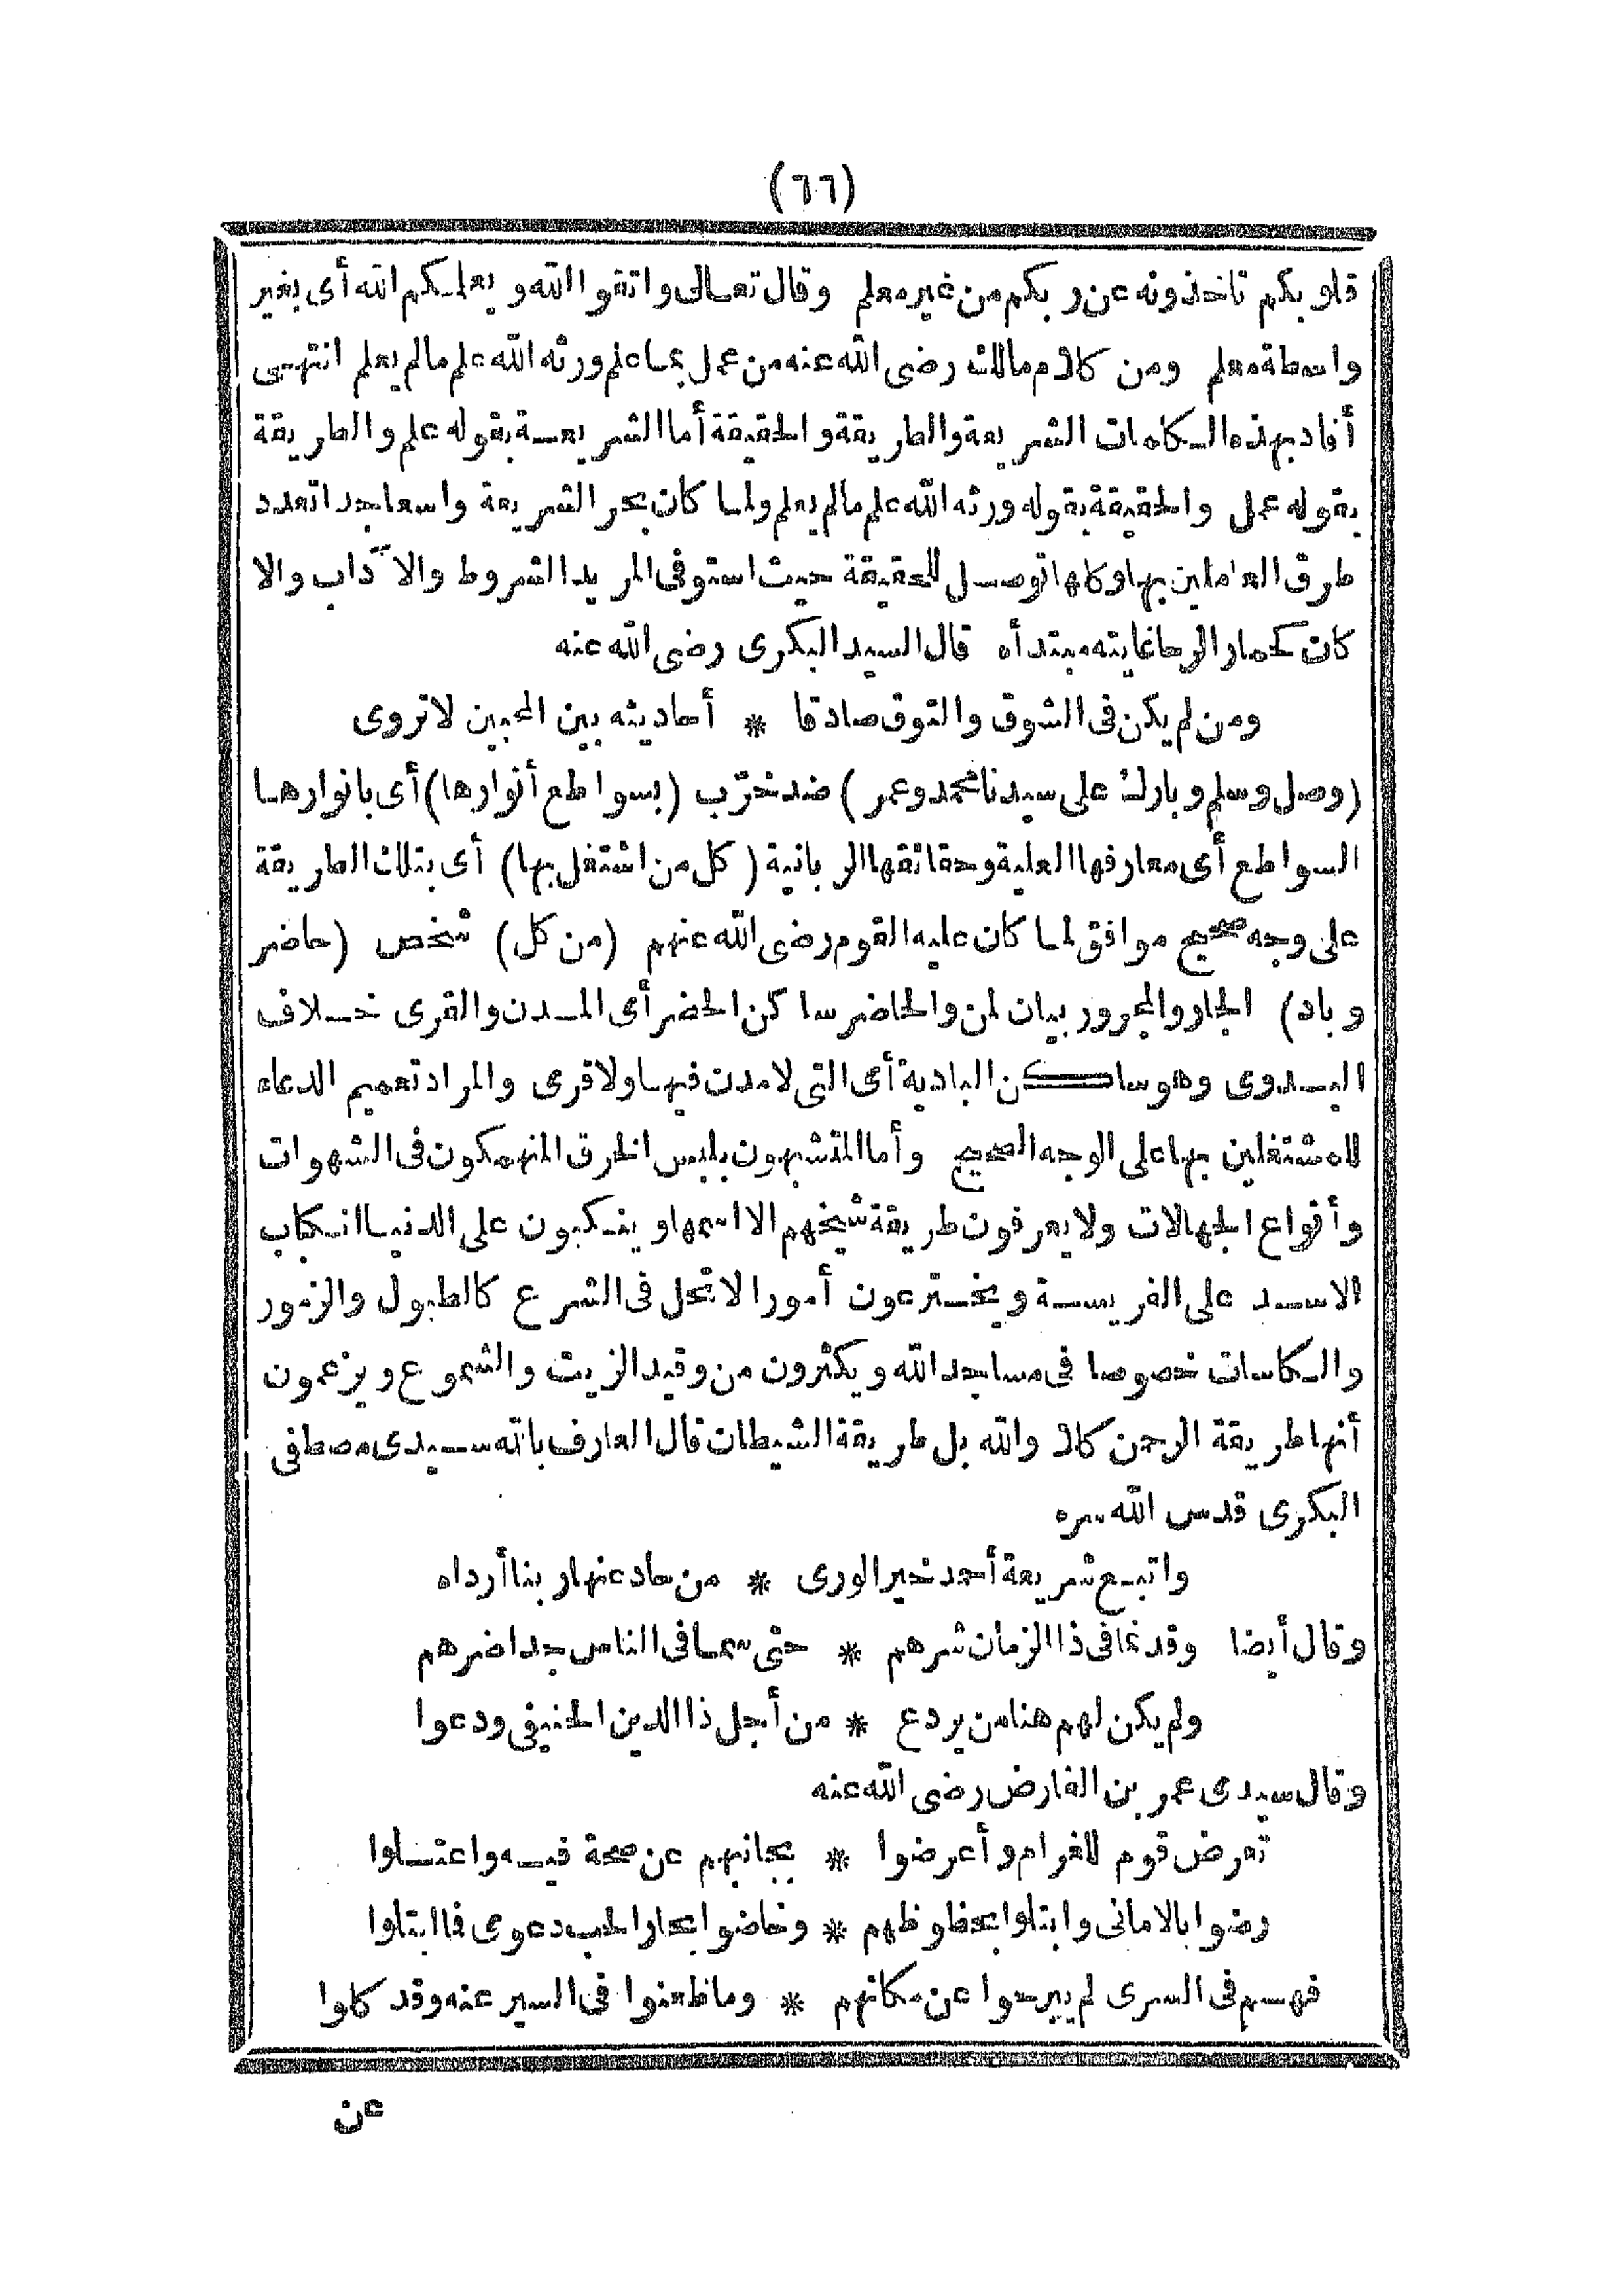 (٦٦)
قلوبكم تاخذونه عن ربكم من غير معلم وقال تعالى واتقوا الله ويعلمكم الله أى بغير
واسطة معلم ومن كلام مالك رضى الله عنه من عمل بما علم ورثه الله علم مالم يعلم انتهى
أفاد بهذه الكلمات الشريعة والطريقة والحقيقة أما الشريعة بقوله علم والطريقة
بقوله عمل والحقيقة بقوله ورثه الله علم مالم يعلم ولما كان بحر الشريعة واسعا جدا تعدد
طرق العاملين بها وكلها توصل للحقيقة حيث استوفى المريد الشروط والآداب والا
كان كحمار الرحا غايته مبتدأه قال السيد البكرى رضى الله عنه
ومن لم يكن فى الشوق والتوق صادقا * أحاديثه بين المحبين لا تروى
(وصل وسلم وبارك على سيدنا محمد وعمر) ضد خرّب (بسواطع أنوارها) أى بانوارها
السواطع أى معارفها العلية وحقائقها الربانية (كل من اشتغل بها) أى بتلك الطريقة
على وجه صحيح موافق لما كان عليه القوم رضى الله عنهم (من كل) شخص (حاضر
وباد) الجار والمجرور بيان لمن والحاضر ساكن الحضر أى المدن والقرى خلاف
البدوى وهو ساكن البادية أى التى لا مدن فيها ولا قرى والمراد تعميم الدعاء
للمشتغلين بها على الوجه الصحيح وأما المتشبهون بلبس الخرق المنهمكون فى الشهوات
وأنواع الجهالات ولا يعرفون طريقة شيخهم الا اسمها وينكبون على الدنيا انكباب
الاسد على الفريسة ويخترعون أمورا لا تحل فى الشرع كالطبول والزمور
والكاسات خصوصا فى مساجد الله ويكثرون من وقيد الزيت والشموع ويزعمون
أنها طريقة الرحمن كلا والله بل طريقة الشيطات قال العارف بالله سيدى مصطفى
البكرى قدس الله سره
واتبع شريعة أحمد خير الورى * من حاد عنها ربنا أرداه
وقال أيضا وقد نما فى ذا الزمان شرهم * حتى سما فى الناس جدا ضرهم
ولم يكن لهم هنا من يردع * من أجل ذا الدين الحنيفى ودعوا
وقال سيدى عمر بن الفارض رضى الله عنه
تعرض قوم للغرام وأعرضوا * بجانبهم عن صحة فيه واعتلوا
رضوا بالامانى وابتلوا بحظوظهم * وخاضوا بحار الحب دعوى فما ابتلوا
فهم فى السرى لم يبرحوا عن مكانهم * وما ظعنوا فى السير عنه وقد كلوا
عن